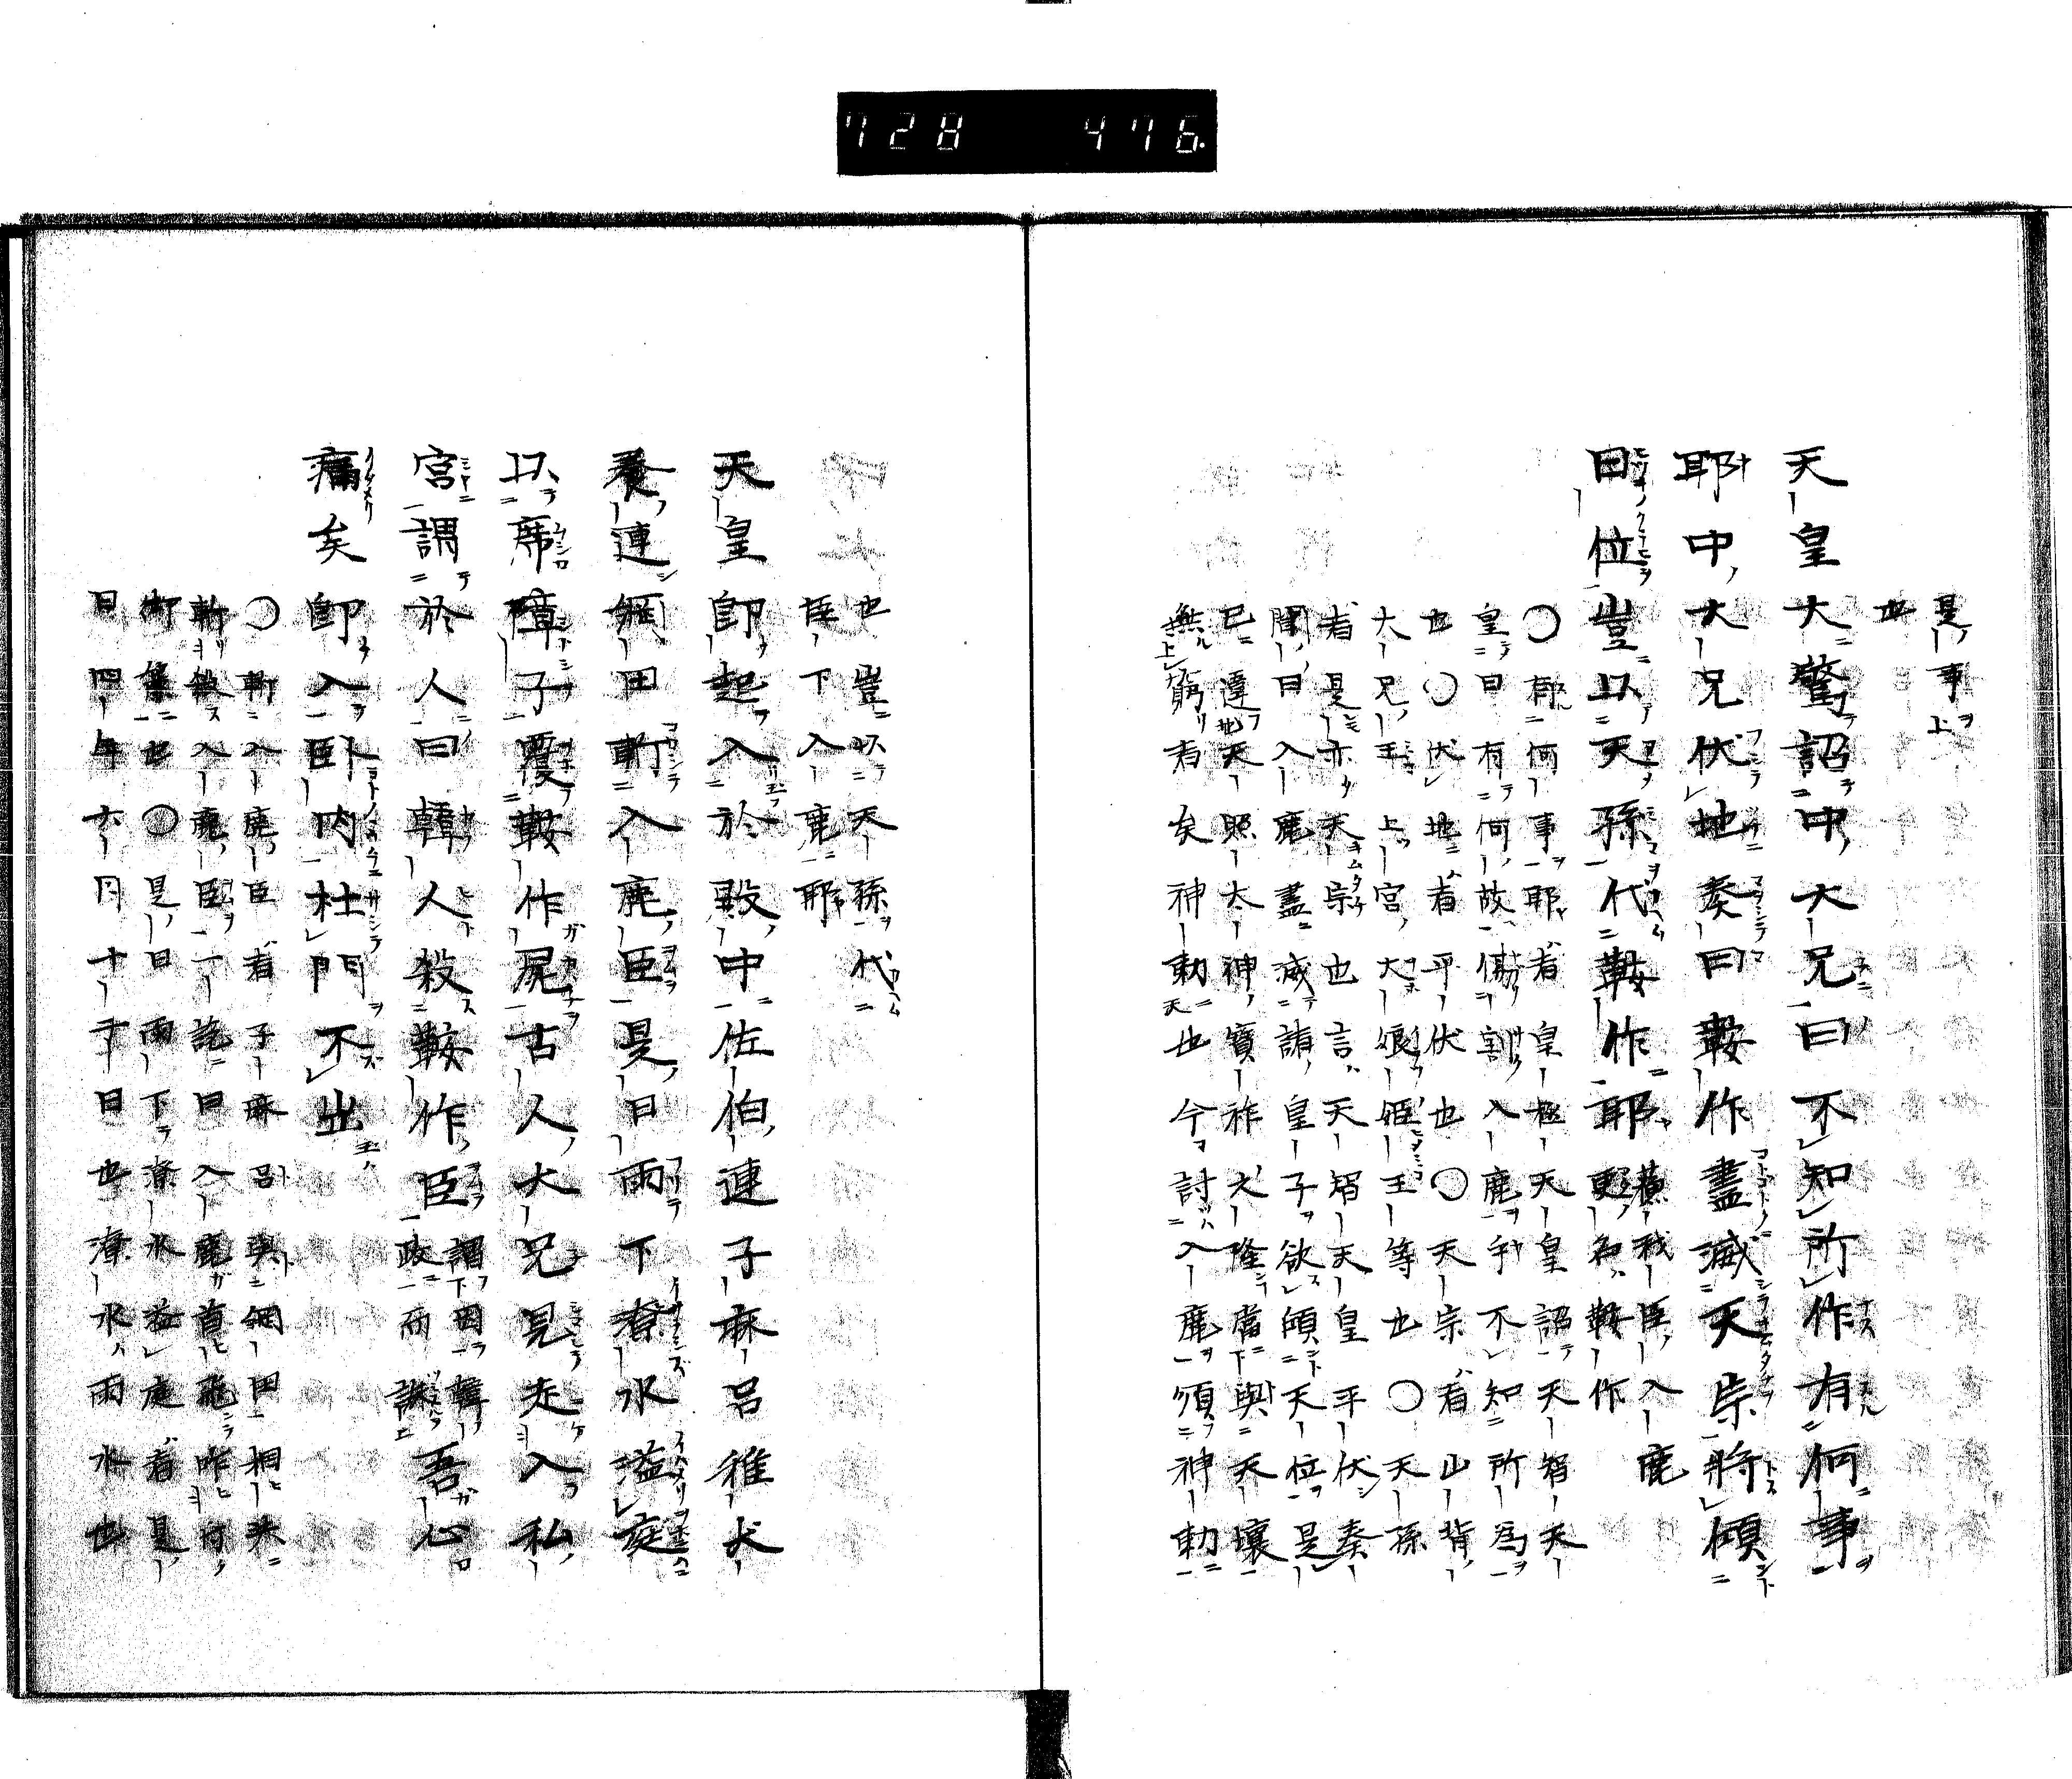 728 476.
是事上
也
天皇大驚詔中大兄曰不知所作有何事
耶中大兄伏地奏曰鞍作盡滅天宗將傾
日位豈以天孫代鞍作耶 蘇我臣入鹿更名鞍作
○有何事耶者皇極天皇詔天智天
皇曰有何故傷割入鹿乎不知所為
也○伏地者平伏也○天宗者山背
大兄王上宮大娘姫王等也○天孫
者是亦天宗也言天智天皇平伏奏
聞曰入鹿盡滅諸皇子欲傾天位是
已違天照太神寶祚之隆當與天壤
無窮者矣神勅也今討入鹿須神勅
也豈以天孫代
臣下入鹿耶
天皇即起入於殿中佐伯連子麻呂稚犬
養連網田斬入鹿臣是日雨下潦水溢庭
以席障子覆鞍作屍古人大兄見走入私
宮謂於人曰韓人殺鞍作臣 謂因韓政而誅 吾心
痛矣即入臥內杜門不出
○斬入鹿臣者子麻呂與網田相共
斬殺入鹿臣一説曰入鹿首飛昨付
御簾也○是日雨下潦水溢庭者是
日四年六月十二日也潦水雨水也